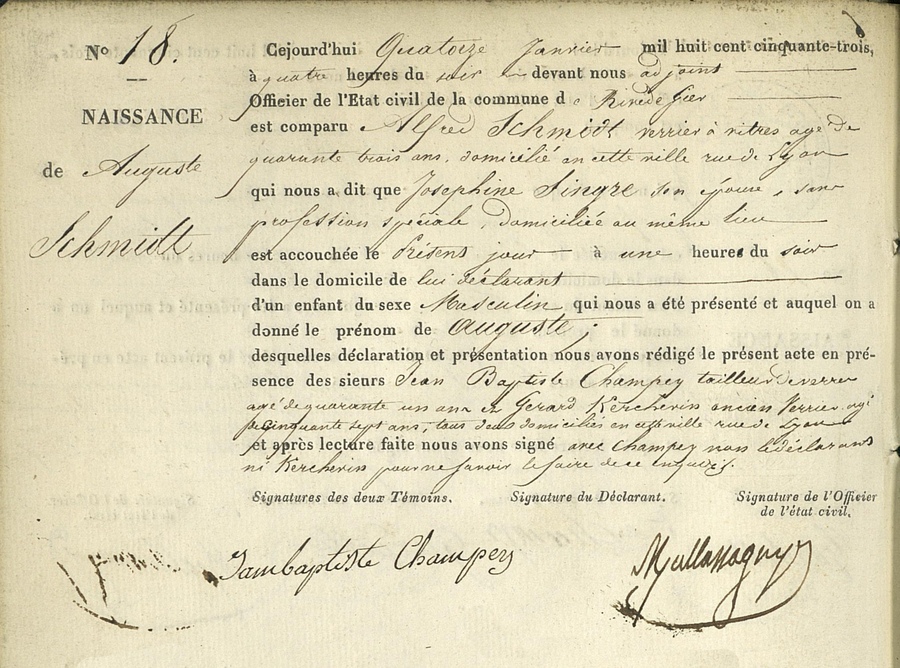 Nº 18.
NAISSANCE
de Auguste
Schmidt
Cejourd'hui Quatorze Janvier mil huit cent cinquante-trois,
à quatre heures du soir devant nous adjoint
Officier de l'Etat civil de la commune de Rivedegier
est comparu Alfred Schmidt verrier à vitres age de
quarante trois ans, domicilié en cette ville rue de Lyon
qui nous a dit que Josephine Singre son épouse, sans
profession spéciale, domiciliée au même lieu
est accouchée le Présent jour à une heures du soir
dans le domicile de lui déclarant
d'un enfant du sexe Masculin qui nous a été présenté et auquel on a
donné le prénom de auguste;
desquelles déclaration et présentation nous avons rédigé le présent acte en pré-
sence des sieurs Jean Baptiste Champey tailleur de verre
agé de quarante un ans et Gerard Kercherin ancien Verrier agé
de Cinquante sept ans, tous deux domiciliés en cette ville rue de Lyon
et après lecture faite nous avons signé avec Champey non le déclarant
ni Kercherin pour ne savoir le faire de ce enquis.
Signatures des deux Témoins. Signature du Déclarant. Signature de l'Officier
de l'état civil.
Jambaptiste Champey